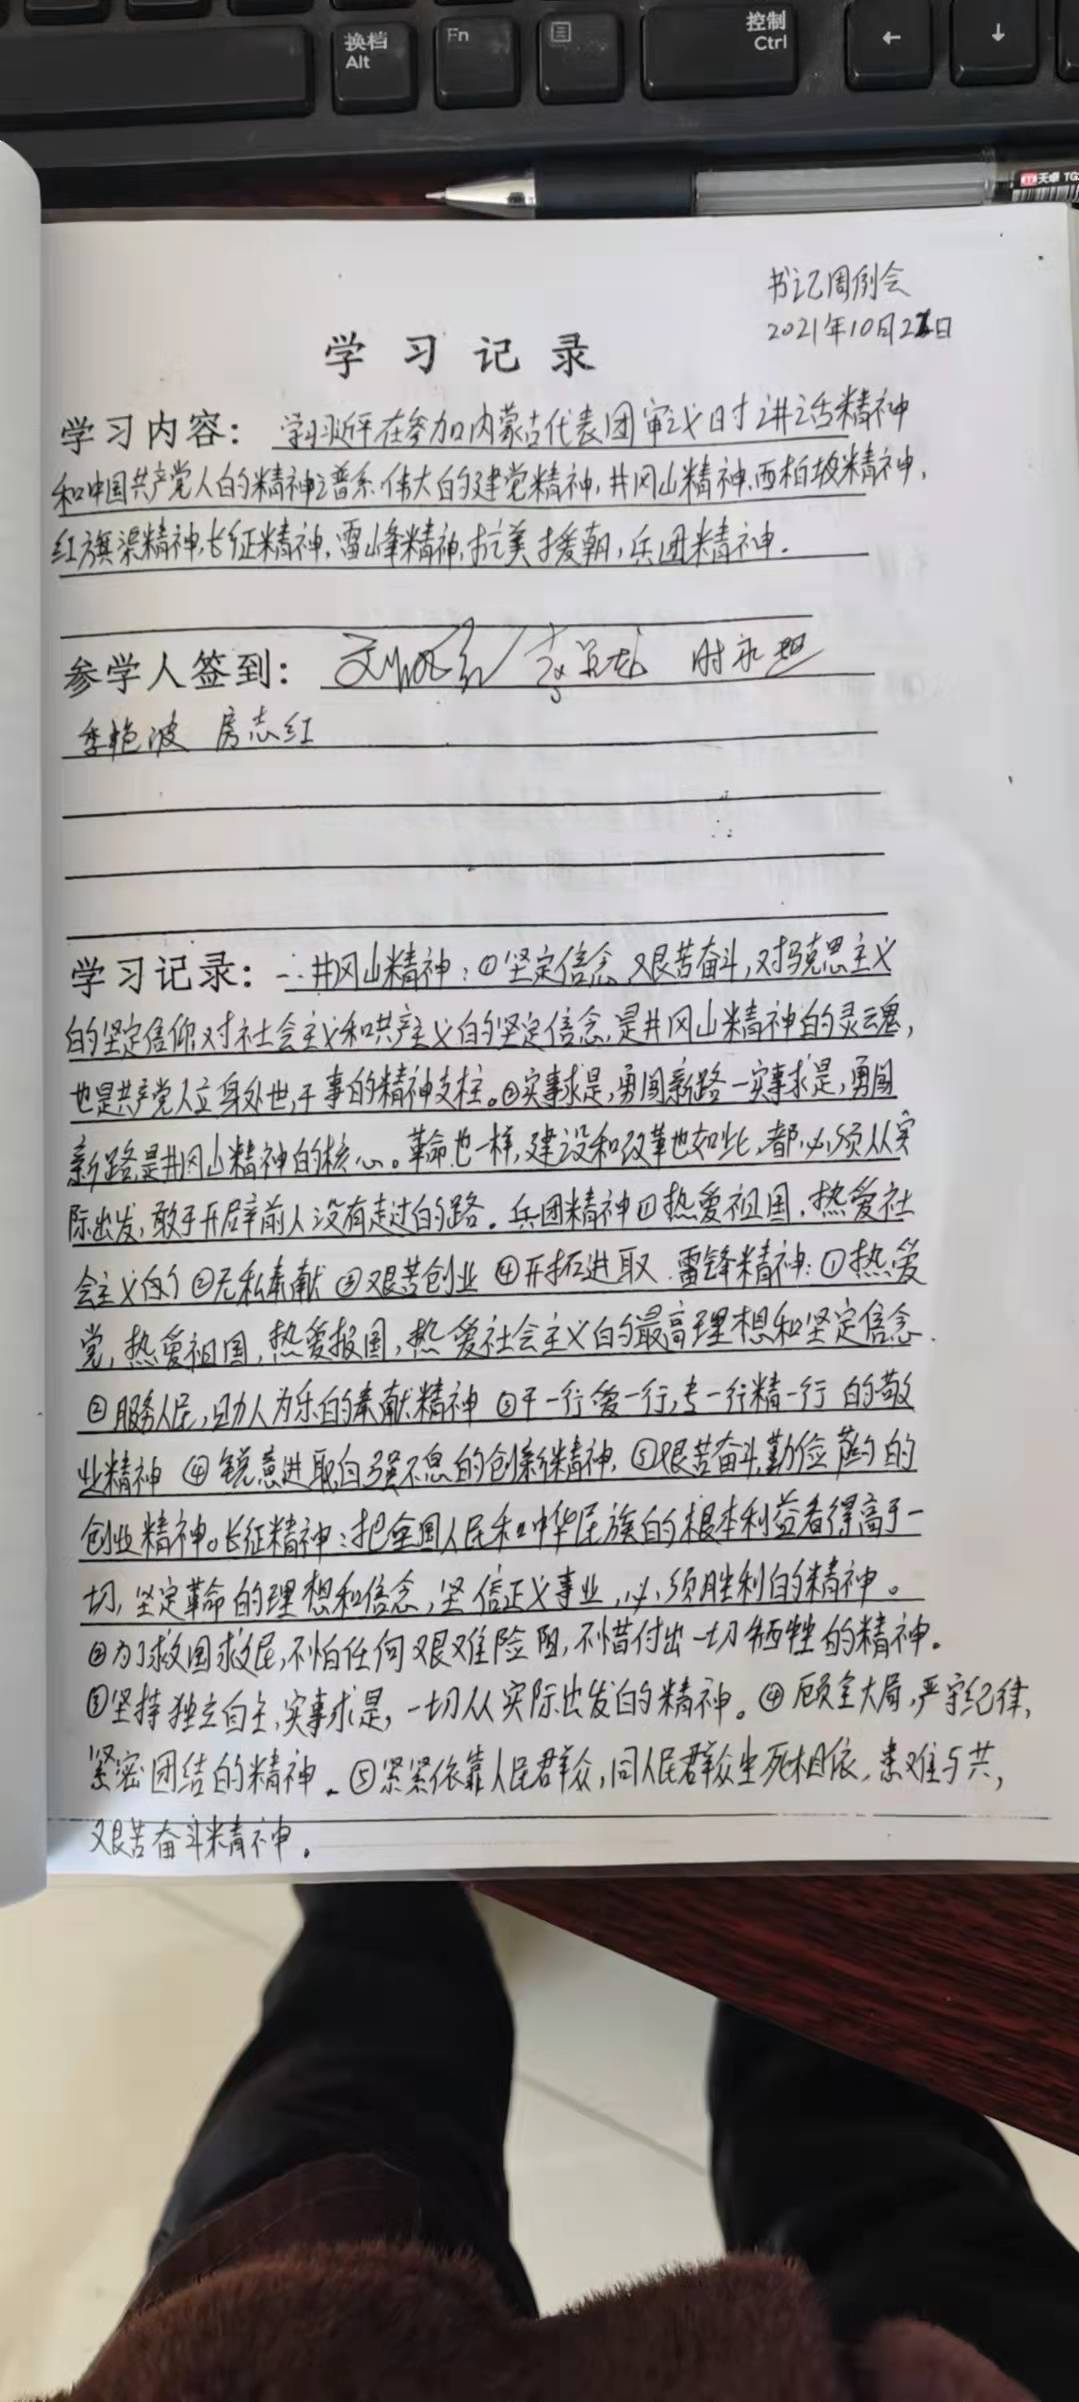 换档
Alt
Fn
控制
Ctrl
←
↓
天卓 TG
书记周例会
2021年10月2日
学习记录
学习内容：学习习近平在参加内蒙古代表团审议时讲话精神
和中国共产党人的精神谱系.伟大的建党精神,井冈山精神,西柏坡精神,
红旗渠精神,长征精神,雷峰精神,抗美援朝,兵团精神.
参学人签到：
李艳波 房志红
学习记录：一.井冈山精神：①坚定信念,艰苦奋斗,对马克思主义
的坚定信仰对社会主义和共产主义的坚定信念,是井冈山精神的灵魂,
也是共产党人立身处世,干事的精神支柱。②实事求是,勇闯新路一实事求是,勇闯
新路是井冈山精神的核心。革命也一样,建设和改革也如此,都必须从实
际出发,敢于开辟前人没有走过的路。兵团精神①热爱祖国,热爱社
会主义的 ②无私奉献 ③艰苦创业 ④开拓进取.雷锋精神:①热爱
党,热爱祖国,热爱报国,热爱社会主义的最高理想和坚定信念.
②服务人民,助人为乐的奉献精神 ③干一行爱一行,专一行精一行的敬
业精神 ④锐意进取自强不息的创新精神,⑤艰苦奋斗勤俭节约的
创业精神。长征精神:把全国人民和中华民族的根本利益看得高于一
切,坚定革命的理想和信念,坚信正义事业,必须胜利的精神。
②为了救国救民,不怕任何艰难险阻,不惜付出一切牺牲的精神。
③坚持独立自主,实事求是,一切从实际出发的精神。④顾全大局,严守纪律,
紧密团结的精神。⑤紧紧依靠人民群众,同人民群众生死相依,患难与共,
艰苦奋斗精神。